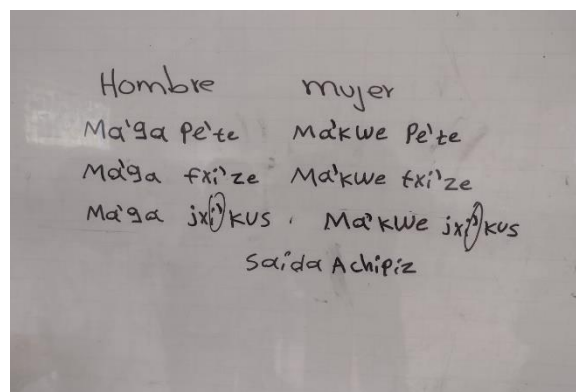 Hombre mujer
Ma'ga Pe'te Ma'kwe Pe'te
Ma'ga txi'ze Ma'kwe txi'ze
Ma'ga jxi'kus Ma'kwe jxi'kus
Saida Achipiz